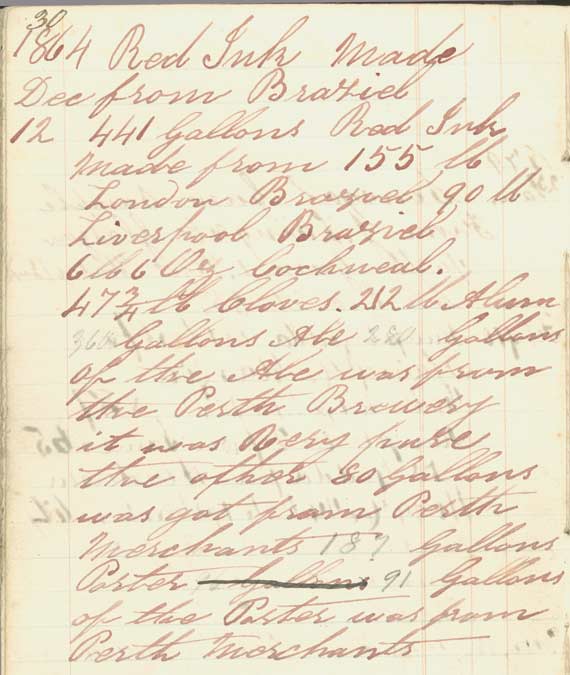 30
1864 Red Ink Made
Dec from Braziel
12 441 Gallons Red Ink
Made from 155 lb
London Braziel 90 lb
Liverpool Braziel
6 lb 6 Oz Cochneal.
47 3/4 lb Cloves. 212 lb Alum
360 Gallons Ale 280 Gallons
of the Ale was from
the Perth Brewery
it was Very pure
the other 80 Gallons
was got from Perth
Merchants 187 Gallons
Porter Gallons 91 Gallons
of the Porter was from
Perth Merchants